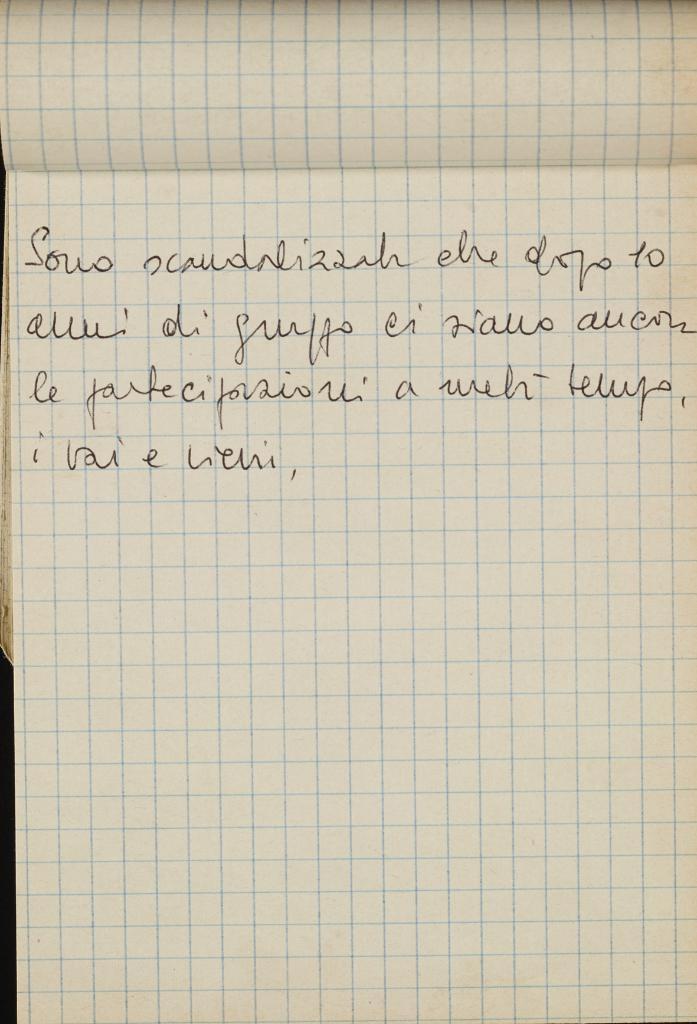 Sono scandalizzata che dopo 10
anni di gruppo ci siano ancora
le partecipazioni a metà tempo,
i vai e vieni,